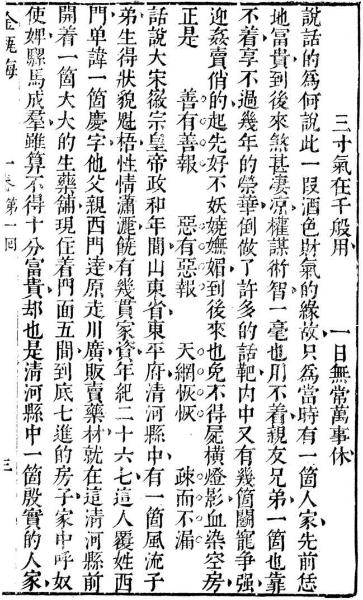 三寸氣在千般用 一日無常萬事休
說話的為何說此一段酒色財氣的緣故只為當時有一箇人家先前恁
地富貴到後來煞甚凄凉權謀術智一毫也用不着親友兄弟一箇也靠
不着享不過幾年的榮華倒做了許多的話靶內中又有幾箇鬭寵爭强
迎姦賣俏的起先好不妖嬈嫵媚到後來也免不得屍橫燈影血染空房
正是 善有善報 惡有惡報 天網恢恢 疎而不漏
話說大宋徽宗皇帝政和年間山東省東平府清河縣中有一箇風流子
弟生得狀貌魁梧性情瀟灑饒有幾貫家資年紀二十六七這人覆姓西
門单諱一箇慶字他父親西門達原走川廣販賣藥材就在這清河縣前
開着一箇大大的生藥鋪現住着門面五間到底七進的房子家中呼奴
使婢騾馬成羣雖算不得十分富貴却也是清河縣中一箇殷實的人家
金瓶梅 一卷第一回 三